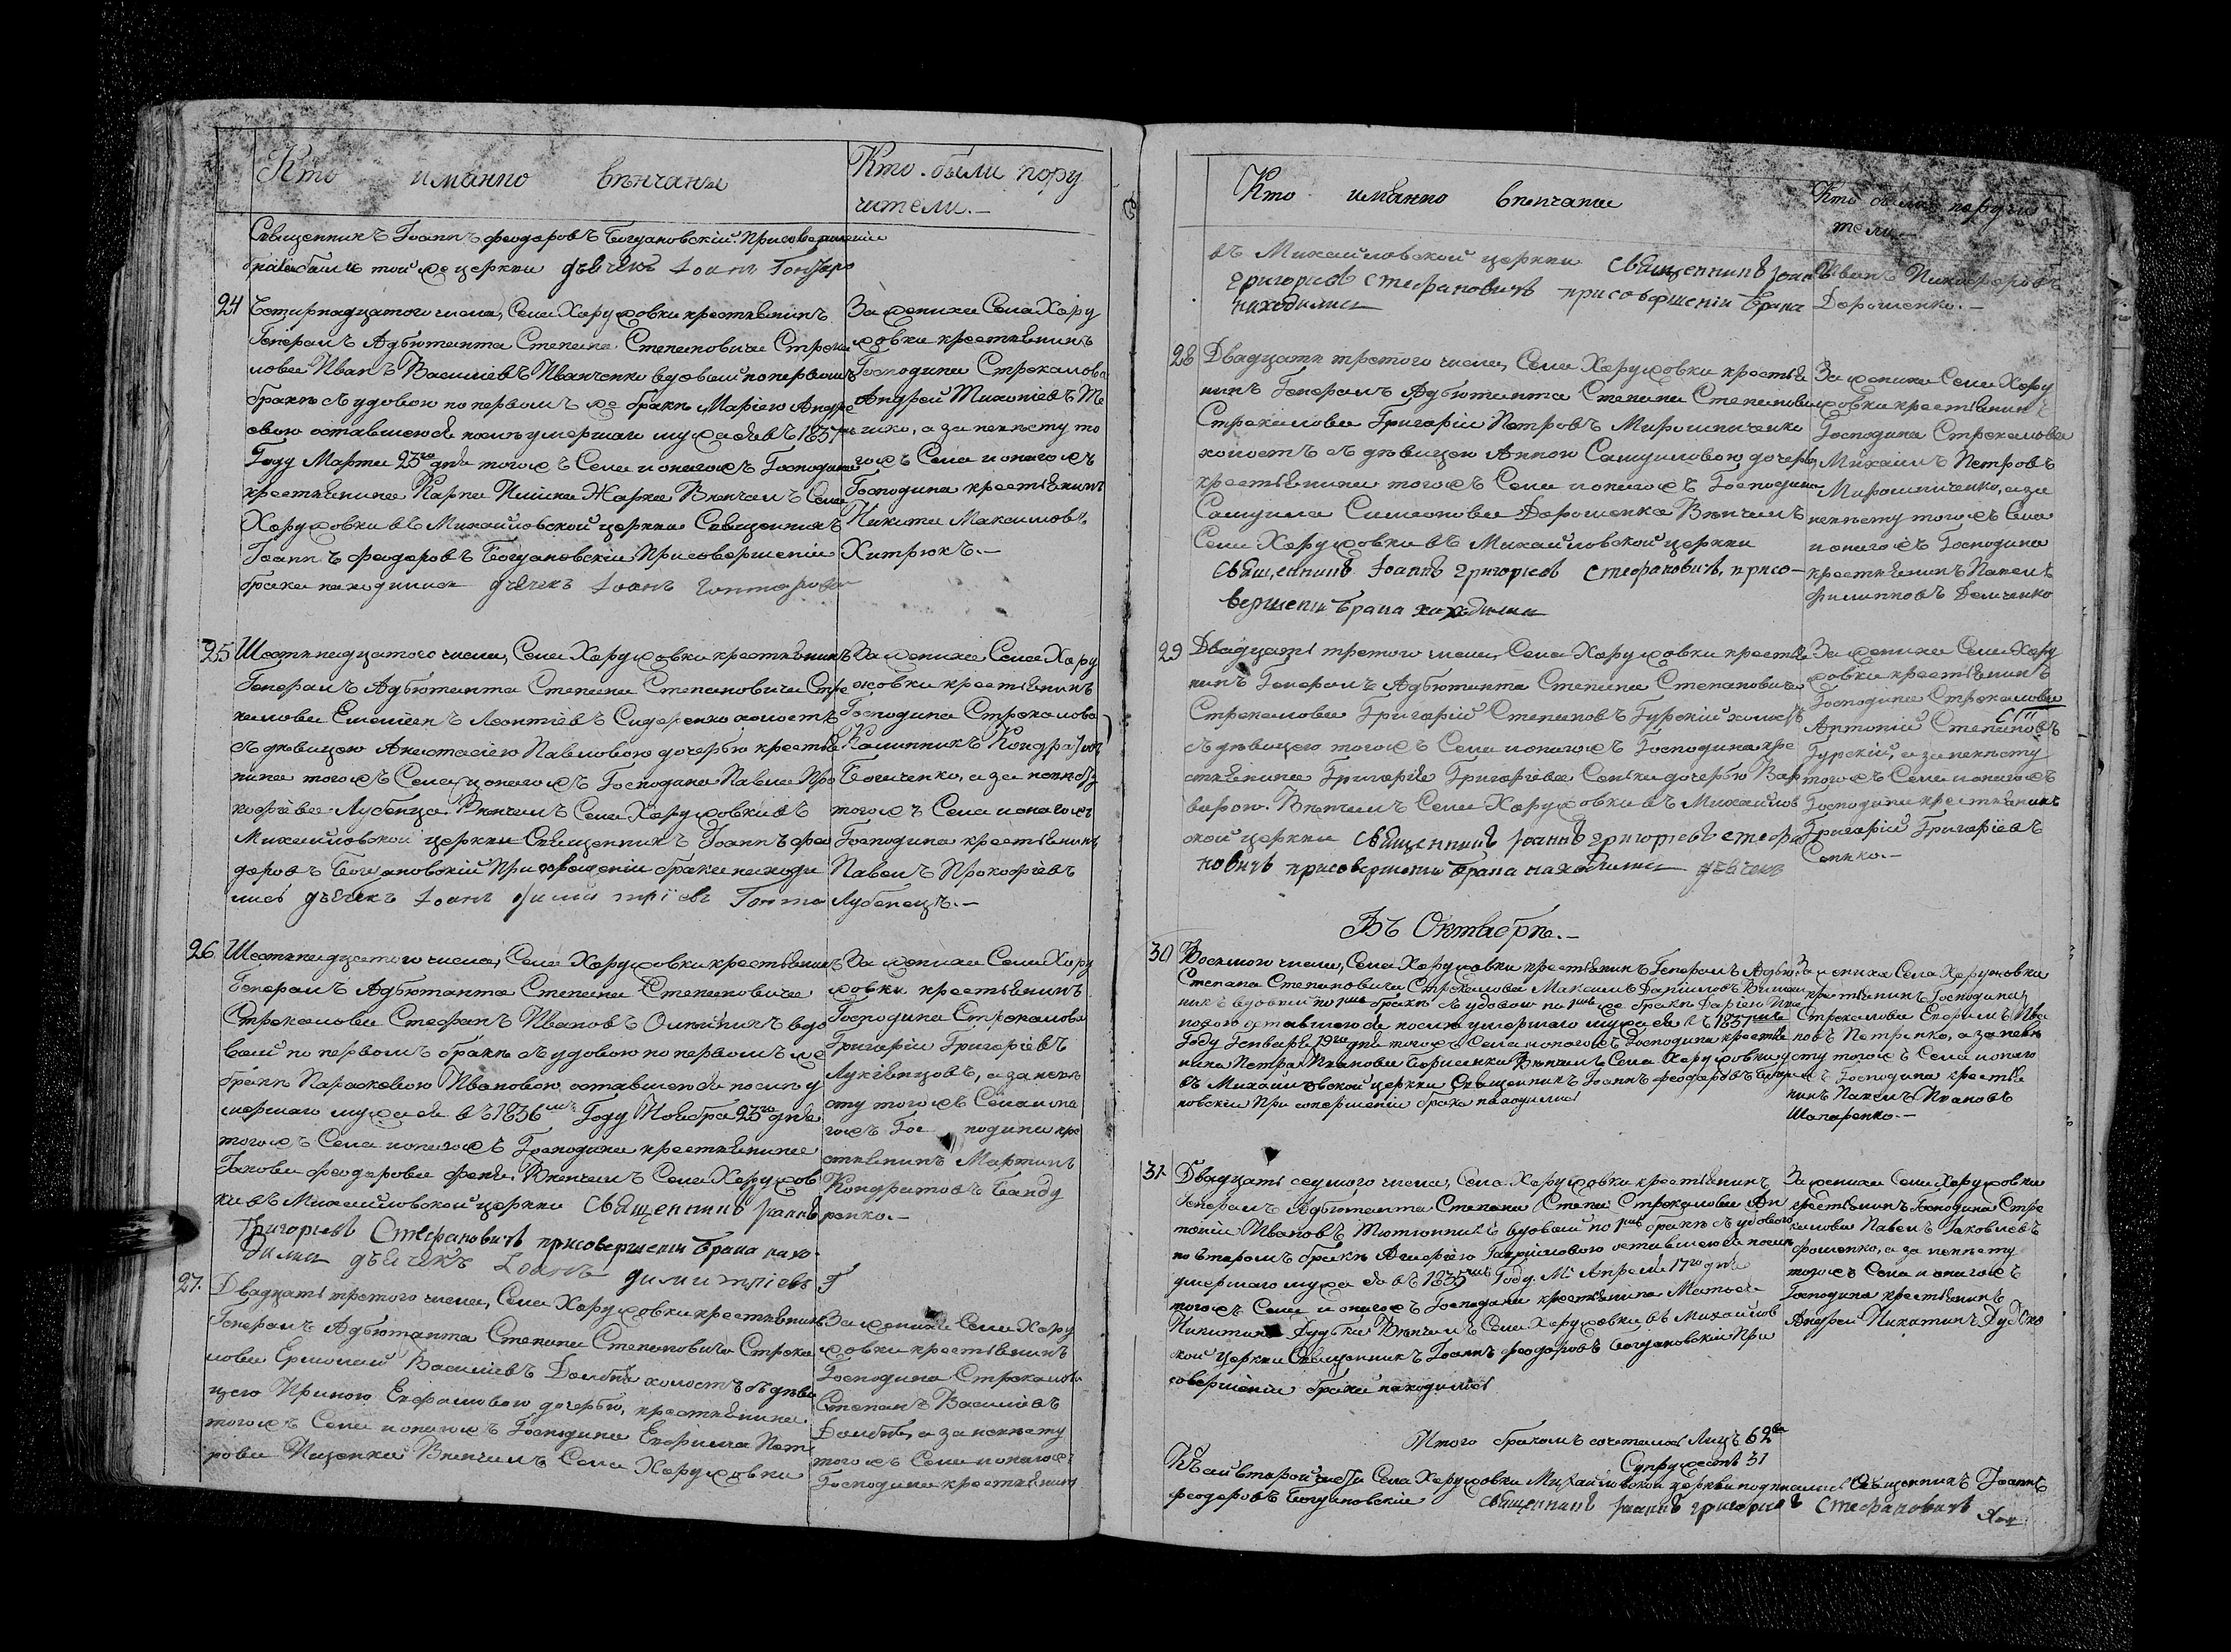 Кто имянно венчаны
Кто были пору
чители.—
Священникъ Іоаннъ Феодоровъ Богдановскій. При совершеніи
брака были той же церкви дьячекъ Іоанъ
24 Четырнадцатого числа, Села Харужовки крестьянинъ
Генералъ Адъютанта Степана Степановича Стрека
лова Иванъ Василіевъ Иванченко вдовый по первомъ
бракѣ съ удовою по первомъ же бракѣ Маріею Андре
евою оставшеюся послѣ умершаго мужа ея въ 1837мъ
Году Марта 23го дня тогожъ Села и оногожъ Господина
крестьянина Карпа Жарка Вѣнчалъ Села
Харужовки въ Михайловской церкви Священникъ
Іоаннъ Феодоровъ Богдановскій При совершеніи
брака находился дьячекъ Іоанъ
За жениха Села Хару
жовки крестьянинъ
Господина Стрекалова
Андрей
а за невѣсту то
гожъ Села и оногожъ
Господина крестьянинъ
Никита Максимовъ
Хитрюкъ.—
25 Шестнадцатого числа, Села Харужовки крестьянинъ
Генералъ Адъютанта Степана Степановича Стре
калова Емеліянъ Леонтіевъ Сидоренко холостъ
съ дѣвицею Анастасіею Павловою дочерью крестья
нина тогожъ Села и оногожъ Господина Павла Про
кофіева Лубенца Вѣнчалъ Села Харужовки въ
Михайловской церкви Священникъ Іоаннъ Фео
доровъ Богдановскій При совершеніи брака находи
лись дьячекъ Іоанъ Димитріевъ Гонта
За жениха Села Хару
жовки крестьянинъ
Господина Стрекалова
Калинникъ Кондратов
а за невѣсту
тогожъ Села и оногожъ
Господина крестьянинъ
Павелъ Прокофіевъ
Лубенецъ.—
26 Шестнадцатого числа, Села Харужовки крестьянинъ
Генералъ Адъютанта Степана Степановича
Стрекалова Стефанъ Ивановъ Олѣйникъ вдо
вый по первомъ бракѣ съ удовою по первомъ же
бракѣ Параскевою Ивановою, оставшеюся послѣ у
мершаго мужа ея въ 1836мъ Году Ноября 23го дня
тогожъ Села и оногожъ Господина крестьянина
Іакова Феодорова Вѣнчалъ Села Харужов
ки въ Михайловской церкви Священникъ Іоаннъ
Григорьевъ Стефановичъ при совершеніи брака нахо-
дились дьячекъ Іоанъ Димитріевъ Г
За жениха Села Хару
жовки крестьянинъ
Господина Стрекалова
Григорій Григоріевъ
а за невѣ
сту тогожъ Села и оно
гожъ Господина кре
стьянинъ Мартинъ
Кондратовъ Банду
ренко.—
27. Двадцать третого числа, Села Харужовки крестьянинъ
Генералъ Адъютанта Степана Степановича Стрека
лова Ермолай Василіевъ Долбня холостъ съ дѣви
цею Ириною Евфимовою дочерью, крестьянина
тогожъ Села и оногожъ Господина Евфима Пет
рова Ищенка Вѣнчалъ Села Харужовки
За жениха Села Хару
жовки крестьянинъ
Господина Стрекалова
Степанъ Василіевъ
Долбня, а за невѣсту
тогожъ Села и оногожъ
Господина крестьянинъ
Кто имянно венчаны
Кто были поручи
тели.—
въ Михайловской церкви Священникъ Іоаннъ
Григорьевъ Стефановичъ при совершеніи брака
находились
Иванъ Никифоровъ
Дорошенко.—
28 Двадцать третого числа, Села Харужовки крестья
нинъ Генералъ Адъютанта Степана Степанови
Стрекалова Григорій Петровъ Мирошниченко
холостъ съ дѣвицею Анною Самуиловою дочерью
крестьянина тогожъ Села и оногожъ Господина
Самуила Симеонова Дорошенка Вѣнчалъ
Села Харужовки въ Михайловской церкви
Священникъ Іоаннъ Григорьевъ Стефановичъ, присо-
вершеніи брака находились
За жениха Села Хару
жовки крестьянинъ
Господина Стрекалова
Михаилъ Петровъ
Мирошниченко, а за
невѣсту тогожъ Села
и оногожъ Господина
крестьянинъ Павелъ
Филипповъ Демченко
29 Двадцать третого числа, Села Харужовки крестья
нинъ Генералъ Адъютанта Степана Степановича
Стрекалова Григорій Степановъ Гурскій холостъ
съ дѣвицею тогожъ Села и оногожъ Господина кре
стьянина Григорія Григоріева Сенька дочерью Вар
варою. Вѣнчалъ Села Харужовки въ Михайлов
ской церкви Священникъ Іоаннъ Григорьевъ Стефа
новичъ при совершеніи брака находились дьячекъ
За жениха Села Хару
жовки крестьянинъ
Господина Стрекалова
Антоній Степановъ
Гурскій, а за невѣсту
тогожъ Села и оногожъ
Господина крестьянинъ
Григорій Григоріевъ
Сенько.—
Въ Октябрѣ.—
30 Восмого числа, Села Харужовки крестьянинъ Генералъ Адъю
Степана Степановича Стрекалова Максимъ Даніиловъ
вдовый по 1мъ бракѣ съ удовою по 1мъ же бракѣ Даріею Ива
новою оставшеюся послѣ умершаго мужа ея въ 1837мъ
Году Генваря 19го дня тогожъ Села и оногожъ Господина крестья
нина Петра Иванова Борисенка Вѣнчалъ Села Харужовки
въ Михайловской церкви Священникъ Іоаннъ Феодоровъ Богда
новскій При совершеніи брака находились
За жениха Села Харужовки
крестьянинъ Господина
Стрекалова Евфимъ Ива
новъ Петренко, а за невѣ
сту тогожъ Села и оного
жъ Господина крестья
нинъ Павелъ Ивановъ
Шапаренко.—
31. Двадцать седмого числа, Села Харужовки крестьянинъ
Генералъ Адъютанта Степана Степа Стрекалова Ан
тоній Ивановъ Тютюнникъ вдовый по 1мъ бракѣ съ удовою
по второмъ бракѣ Гавриловою оставшеюся послѣ
умершаго мужа ея въ 1835мъ Году Мц Апреля 17го дня
тогожъ Села и оногожъ Господина крестьянина Матвея
Никитина Дудки Вѣнчалъ Села Харужовки въ Михайлов
ской Церкви Священникъ Іоаннъ Феодоровъ Богдановскій При
совершеніи брака находились
За жениха Села Харужовки
крестьянинъ Господина Стре
калова Павелъ Іаковлевъ
а за невѣсту
тогожъ Села и оногожъ
Господина крестьянинъ
Андрей Никитинъ Дудка
Итого бракомъ сочеталось Лицъ 62ва
Супружествъ 31
Къ сей второй части Села Харужовки Михайловской церкви подписались Священникъ Іоаннъ
Феодоровъ Богдановскій Священникъ Іоаннъ Григорьевъ Стефановичъ